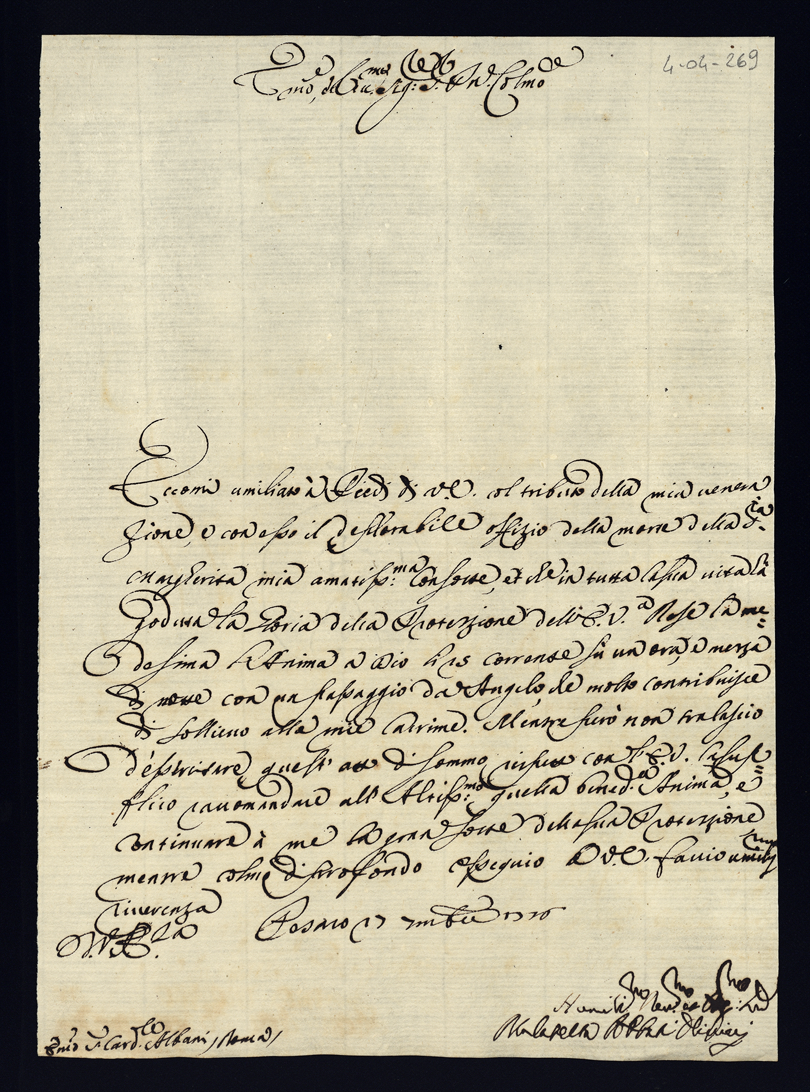 4-04-269
Em.mo, e Rev.mo Sig:r P.ron Colmo
Eccomi umiliato à Piedi di V.E. col tributo della mia venera
zione, e con esso il deplorabile offizio della morte della S.ra
Margherita mia amatiss.ma Consorte, et che in tutta la sua vita hà
goduta la gloria della Protezzione dell'E.V.a Rese la me=
desima l'Anima a Dio li 15 corrente sù un'ora, e mezza
di notte con un passaggio da Angelo, che molto contribuisce
di sollievo alle mie lacrime. Mentre però non tralascio
d'esercitare quest'atto di sommo rispetto con l'E.V. la sup=
plico raccomandare all'Altiss.mo quella bened.a Anima, e
continuare à me la gran sorte della sua Protezzione
mentre colmo di profondo ossequio à V.E. faccio umiliss.ma
riverenza
D.V.E.za Pesaro 17 1716
Em.o S.r Card.le Albani, Roma
Humiliss.mo Dev.mo et Obblig.mo
Olivieri